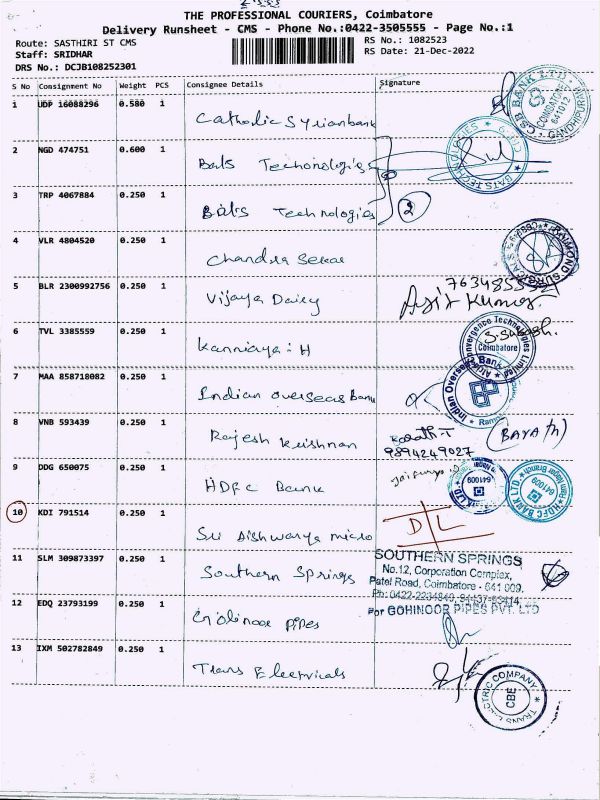 THE PROFESSIONAL COURIERS, Coimbatore
Delivery Runsheet - CMS - Phone No.:0422-3505555 - Page No.:1
Route: SASTHIRI ST CMS
RS No.: 1082523
Staff: SRIDHAR
RS Date: 21-Dec-2022
DRS No.: DCJB108252301
S No Consignment No Weight PCS Consignee Details Signature
1 UDP 16088296 0.580 1
Catholic Syrianbank
CSB BANK LTD. COIMBATORE 641012 GANDHIPURAM
2 NGD 474751 0.600 1
Bats Techonologies
BATS TECHNOLOGIES
3 TRP 4067884 0.250 1
Bats Technologies
2
4 VLR 4804520 0.250 1
Chandra Sekar
5 BLR 2300992756 0.250 1
Vijaya Dairy
Ajit Kumar.
6 TVL 3385559 0.250 1
Kanniaya : H
Convergence Technologies Limited
Coimbatore
7 MAA 858718082 0.250 1
Indian overseas Bank
Indian Overseas Bank
8 VNB 593439 0.250 1
Rajesh Krishnan
9894249027
9 DDG 650075 0.250 1
HDFC Bank
641009
HDFC BANK LTD. 641009
10 KDI 791514 0.250 1
Sri Aishwarya micro
D/L
11 SLM 309873397 0.250 1
Southern Springs
SOUTHERN SPRINGS
No.12, Corporation Complex,
Patel Road, Coimbatore - 641 009.
12 EDQ 23793199 0.250 1
Gohinoor Pipes
For GOHINOOR PIPES PVT. LTD
13 IXM 502782849 0.250 1
Trans Electricals
TRANS ELECTRIC COMPANY
CBE